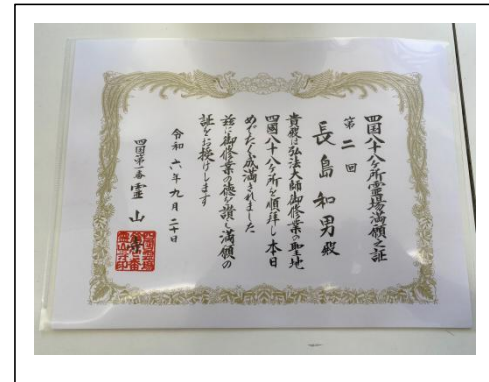 四国八十八ヶ所霊場満願之証
第二回
長島和男殿
貴殿は弘法大師御修業の聖地
四國八十八ヶ所を順拝し本日
めでたく成満されました
茲に御修業の徳を讃え満願の
証を授けします
令和六年九月二十日
四国第一番霊山